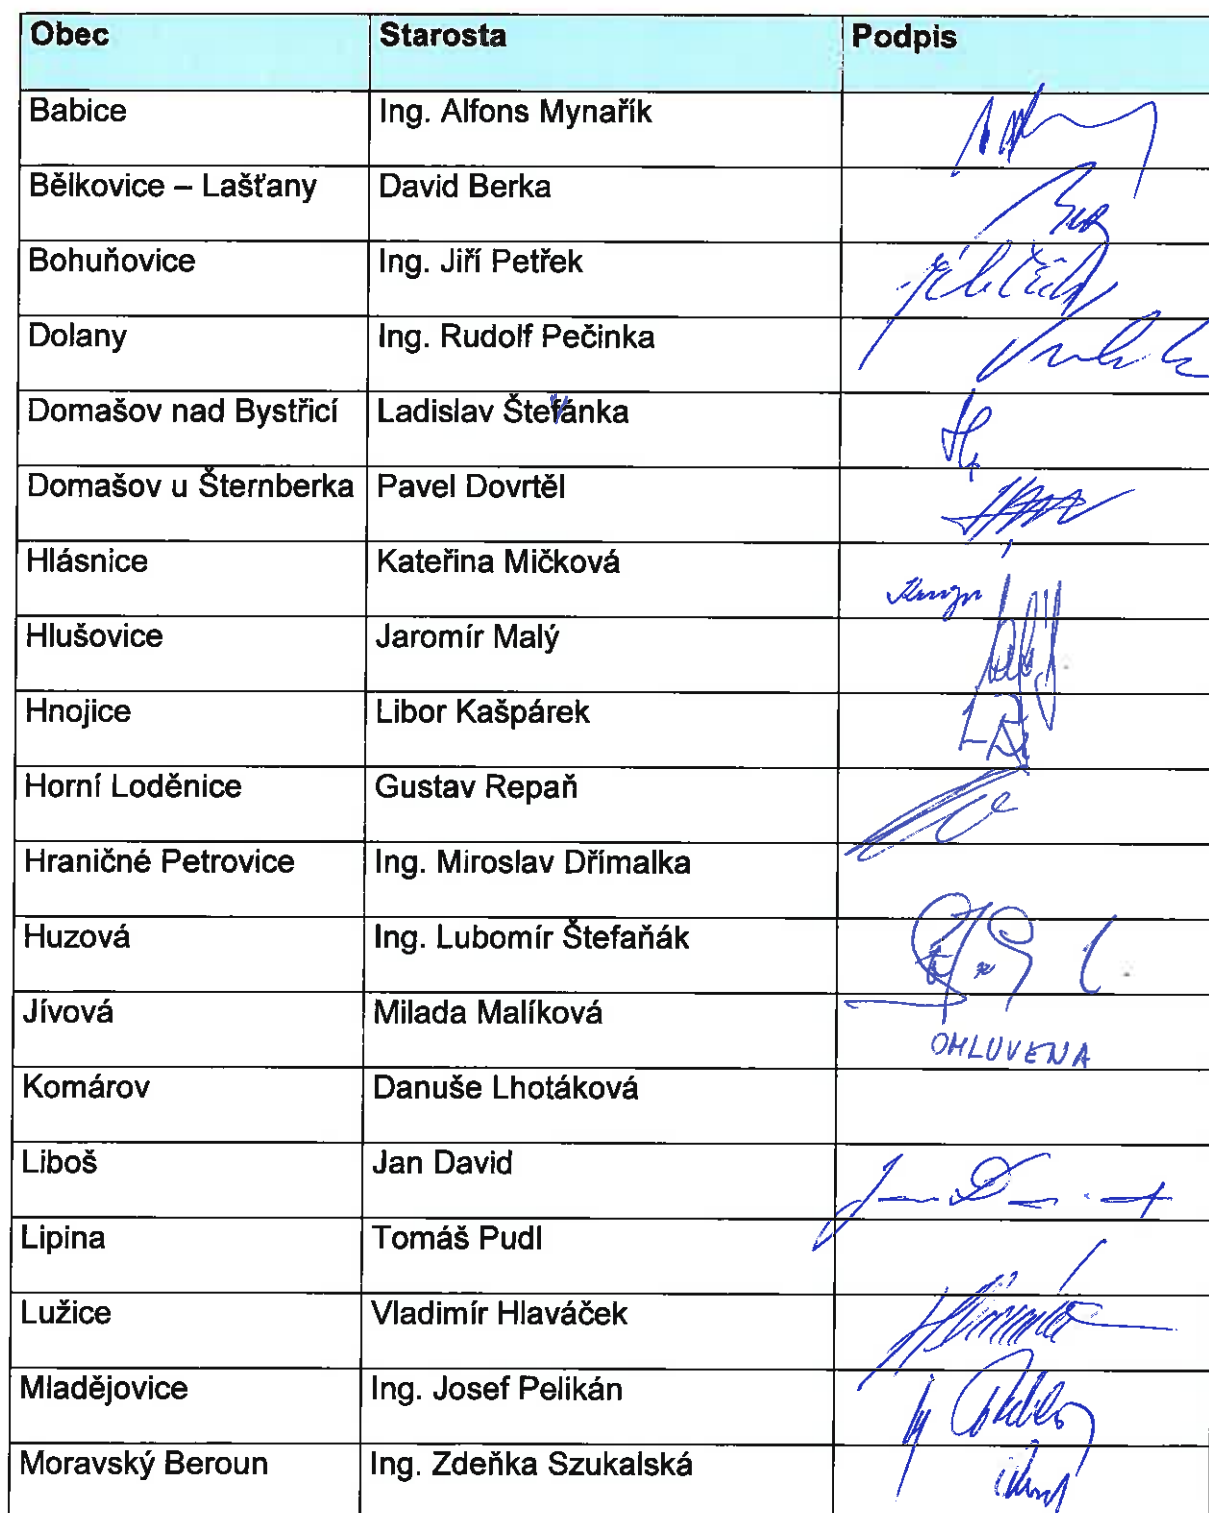 Obec Starosta Podpis
Babice Ing. Alfons Mynařík
Bělkovice – Lašťany David Berka
Bohuňovice Ing. Jiří Petřek
Dolany Ing. Rudolf Pečinka
Domašov nad Bystřicí Ladislav Štefánka
Domašov u Šternberka Pavel Dovrtěl
Hlásnice Kateřina Mičková
Hlušovice Jaromír Malý
Hnojice Libor Kašpárek
Horní Loděnice Gustav Repaň
Hraničné Petrovice Ing. Miroslav Dřímalka
Huzová Ing. Lubomír Štefaňák
Jívová Milada Malíková OMLUVENA
Komárov Danuše Lhotáková
Liboš Jan David
Lipina Tomáš Pudl
Lužice Vladimír Hlaváček
Mladějovice Ing. Josef Pelikán
Moravský Beroun Ing. Zdeňka Szukalská